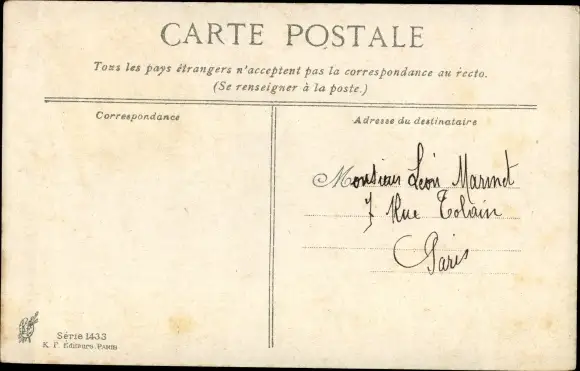 CARTE POSTALE
Tous les pays étrangers n'acceptent pas la correspondance au recto.
(Se renseigner à la poste.)
Correspondance
Adresse du destinataire
Monsieur Léon
7 Rue Tolain
Paris
Série 1433
Éditeurs PARIS